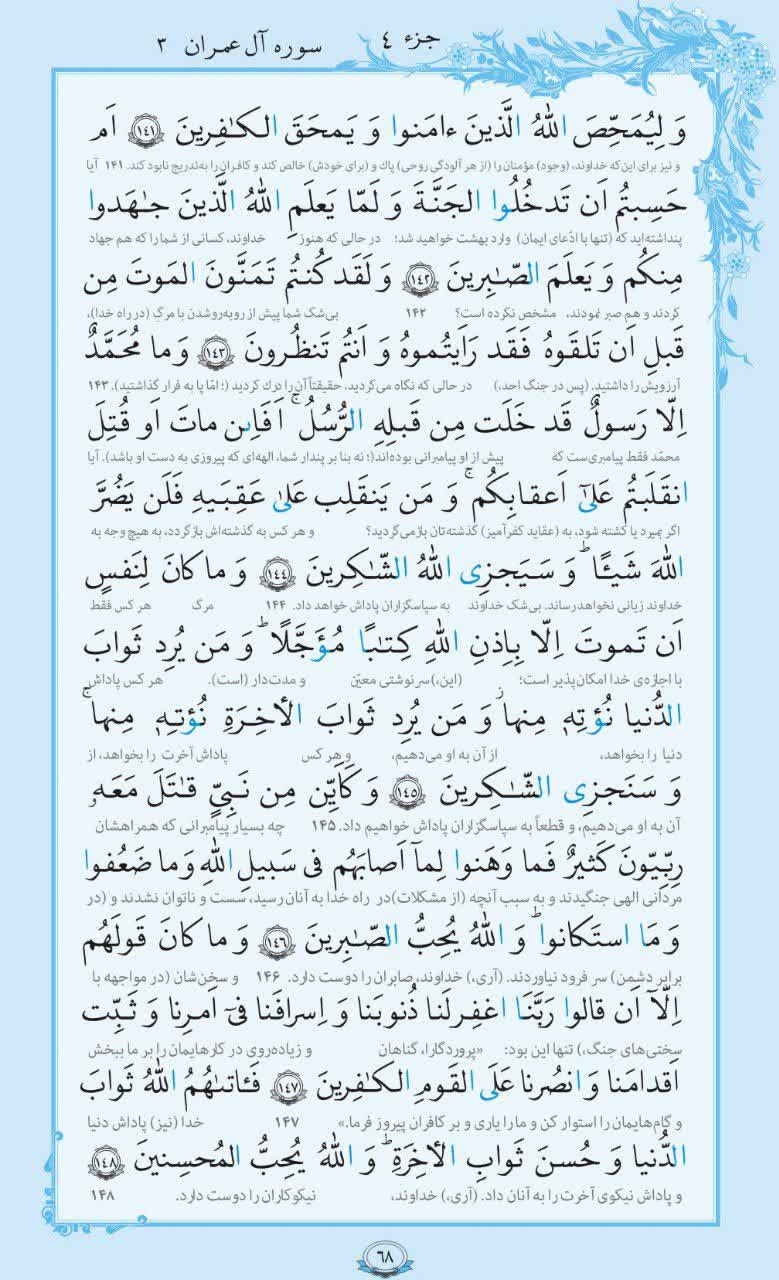 جزء ٤
سوره آل عمران ٣
وَ لِيُمَحِّصَ اللهُ الَّذينَ ءامَنوا وَ يَمحَقَ الكـٰفِرينَ ﴿١٤١﴾ اَم
و نیز برای این‌که خداوند، (وجود) مؤمنان را (از هر آلودگی روحی) پاك و (برای خودش) خالص کند و کافران را به‌تدریج نابود کند. ۱۴۱ آیا
حَسِبتُم اَن تَدخُلُوا الجَنَّةَ وَ لَمّا يَعلَمِ اللهُ الَّذينَ جـٰهَدوا
پنداشته‌اید که (تنها با ادّعای ایمان) وارد بهشت خواهید شد؛ در حالی که هنوز خداوند، کسانی از شما را که هم جهاد
مِنكُم وَ يَعلَمَ الصّـٰبِرينَ ﴿١٤٢﴾ وَ لَقَد كُنتُم تَمَنَّونَ المَوتَ مِن
کردند و هم صبر نمودند، مشخص نکرده است؟ ۱۴۲ بی‌شک شما پیش از روبه‌روشدن با مرگ (در راه خدا)،
قَبلِ اَن تَلقَوهُ فَقَد رَاَيتُموهُ وَ اَنتُم تَنظُرونَ ﴿١٤٣﴾ وَ ما مُحَمَّدٌ
آرزویش را داشتید. (پس در جنگ احد،) در حالی که نگاه می‌کردید، حقیقتاً آن را درك کردید (؛ امّا پا به فرار گذاشتید). ۱۴۳
اِلّا رَسولٌ قَد خَلَت مِن قَبلِهِ الرُّسُلُ ۚ اَفَاِىن ماتَ اَو قُتِلَ
محمّد فقط پیامبری‌ست که پیش از او پیامبرانی بوده‌اند(؛ نه بنا بر پندار شما، الهه‌ای که پیروزی به دست او باشد). آیا
انقَلَبتُم عَلىٰٓ اَعقابِكُم ۚ وَ مَن يَنقَلِب عَلىٰ عَقِبَيهِ فَلَن يَضُرَّ
اگر بمیرد یا کشته شود، به (عقاید کفرآمیز) گذشته‌تان باز می‌گردید؟ و هر کس به گذشته‌اش بازگردد، به هیچ وجه به
اللهَ شَيـًٔا ۗ وَ سَيَجزِى اللهُ الشّـٰكِرينَ ﴿١٤٤﴾ وَ ما كانَ لِنَفسٍ
خداوند زیانی نخواهد رساند. بی‌شک خداوند به سپاسگزاران پاداش خواهد داد. ۱۴۴ مرگ هر کس فقط
اَن تَموتَ اِلّا بِاِذنِ اللهِ كِتـٰبًا مُؤَجَّلًا ۗ وَ مَن يُرِد ثَوابَ
با اجازه‌ی خدا امکان‌پذیر است؛ (این،) سرنوشتی معیّن و مدت‌دار (است). هر کس پاداش
الدُّنيا نُؤتِهٖ مِنها وَ مَن يُرِد ثَوابَ الأخِرَةِ نُؤتِهٖ مِنها ۚ
دنیا را بخواهد، از آن به او می‌دهیم، و هر کس پاداش آخرت را بخواهد، از
وَ سَنَجزِى الشّـٰكِرينَ ﴿١٤٥﴾ وَ كَاَيِّن مِن نَبِيٍّ قـٰتَلَ مَعَهٗ
آن به او می‌دهیم، و قطعاً به سپاسگزاران پاداش خواهیم داد. ۱۴۵ چه بسیار پیامبرانی که همراهشان
رِبِّيّونَ كَثيرٌ فَما وَهَنوا لِمآ اَصابَهُم فى سَبيلِ اللهِ وَ ما ضَعُفوا
مردانی الهی جنگیدند و به سبب آنچه (از مشکلات) در راه خدا به آنان رسید، سست و ناتوان نشدند و (در
وَ مَا استَكانوا ۗ وَ اللهُ يُحِبُّ الصّـٰبِرينَ ﴿١٤٦﴾ وَ ما كانَ قَولَهُم
برابر دشمن) سر فرود نیاوردند. (آری،) خداوند، صابران را دوست دارد. ۱۴۶ و سخن‌شان (در مواجهه با
اِلّآ اَن قالوا رَبَّنَا اغفِرلَنا ذُنوبَنا وَ اِسرافَنا فىٓ اَمرِنا وَ ثَبِّت
سختی‌های جنگ،) تنها این بود: «پروردگارا، گناهان و زیاده‌روی در کارهایمان را بر ما ببخش
اَقدامَنا وَ انصُرنا عَلَى القَومِ الكـٰفِرينَ ﴿١٤٧﴾ فَـٔاتىٰهُمُ اللهُ ثَوابَ
و گام‌هایمان را استوار کن و ما را یاری و بر کافران پیروز فرما.» ۱۴۷ خدا (نیز) پاداش دنیا
الدُّنيا وَ حُسنَ ثَوابِ الأخِرَةِ ۗ وَ اللهُ يُحِبُّ المُحسِنينَ ﴿١٤٨﴾
و پاداش نیکوی آخرت را به آنان داد. (آری،) خداوند، نیکوکاران را دوست دارد. ۱۴۸
٦٨